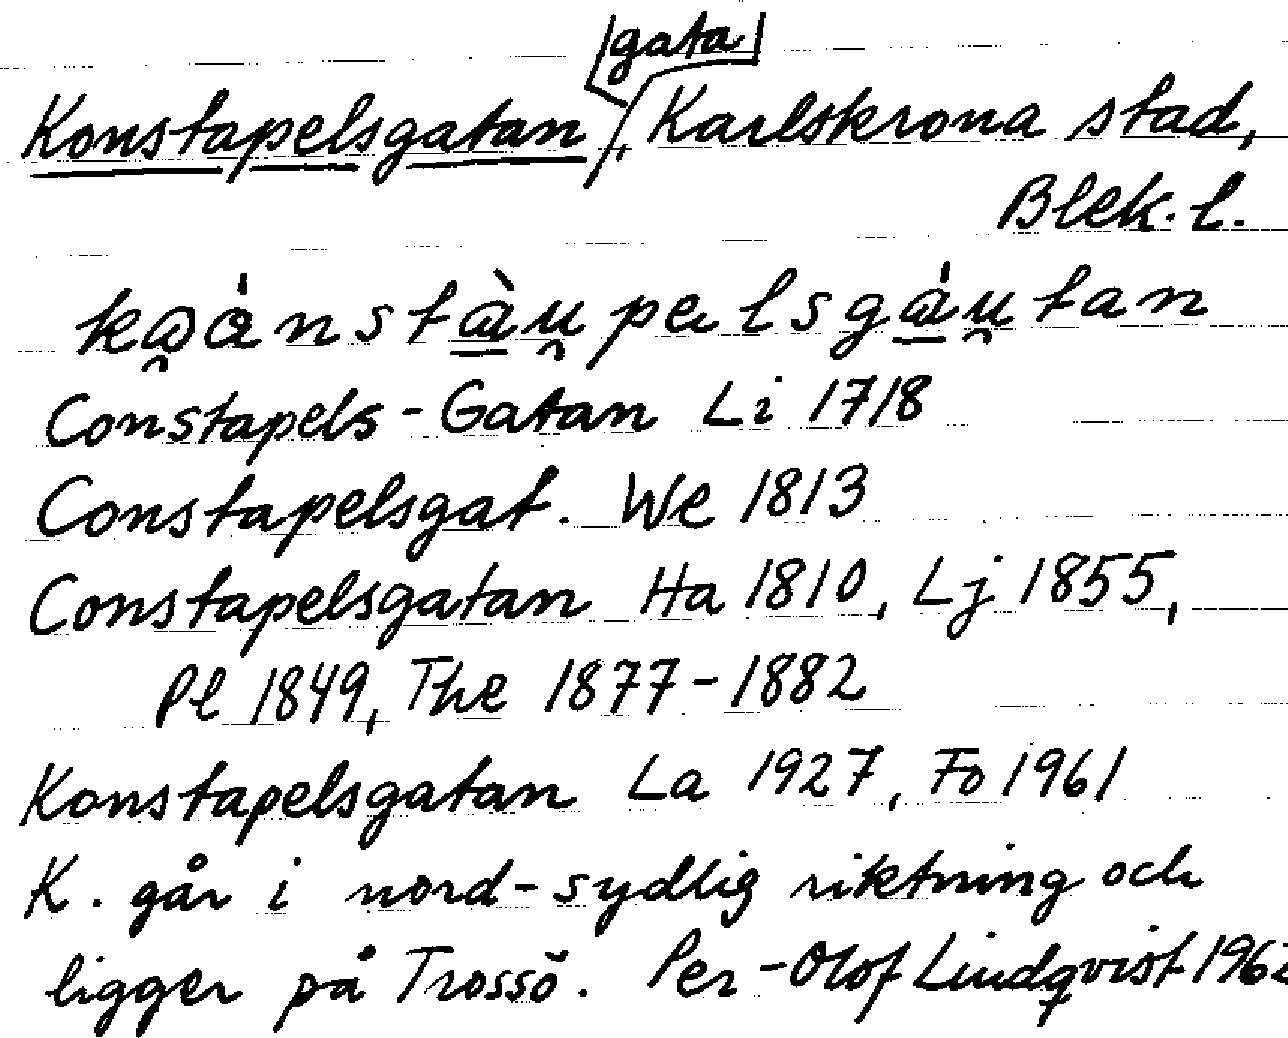 gata
Konstapelsgatan, Karlskrona stad,
Blek. l.
Constapels-Gatan Li 1718
Constapelsgat. We 1813
Constapelsgatan Ha 1810, Lj 1855,
Pl 1849, The 1877-1882
Konstapelsgatan La 1927, Fo 1961
K. går i nord-sydlig riktning och
ligger på Trossö. Per-Olof Lindqvist